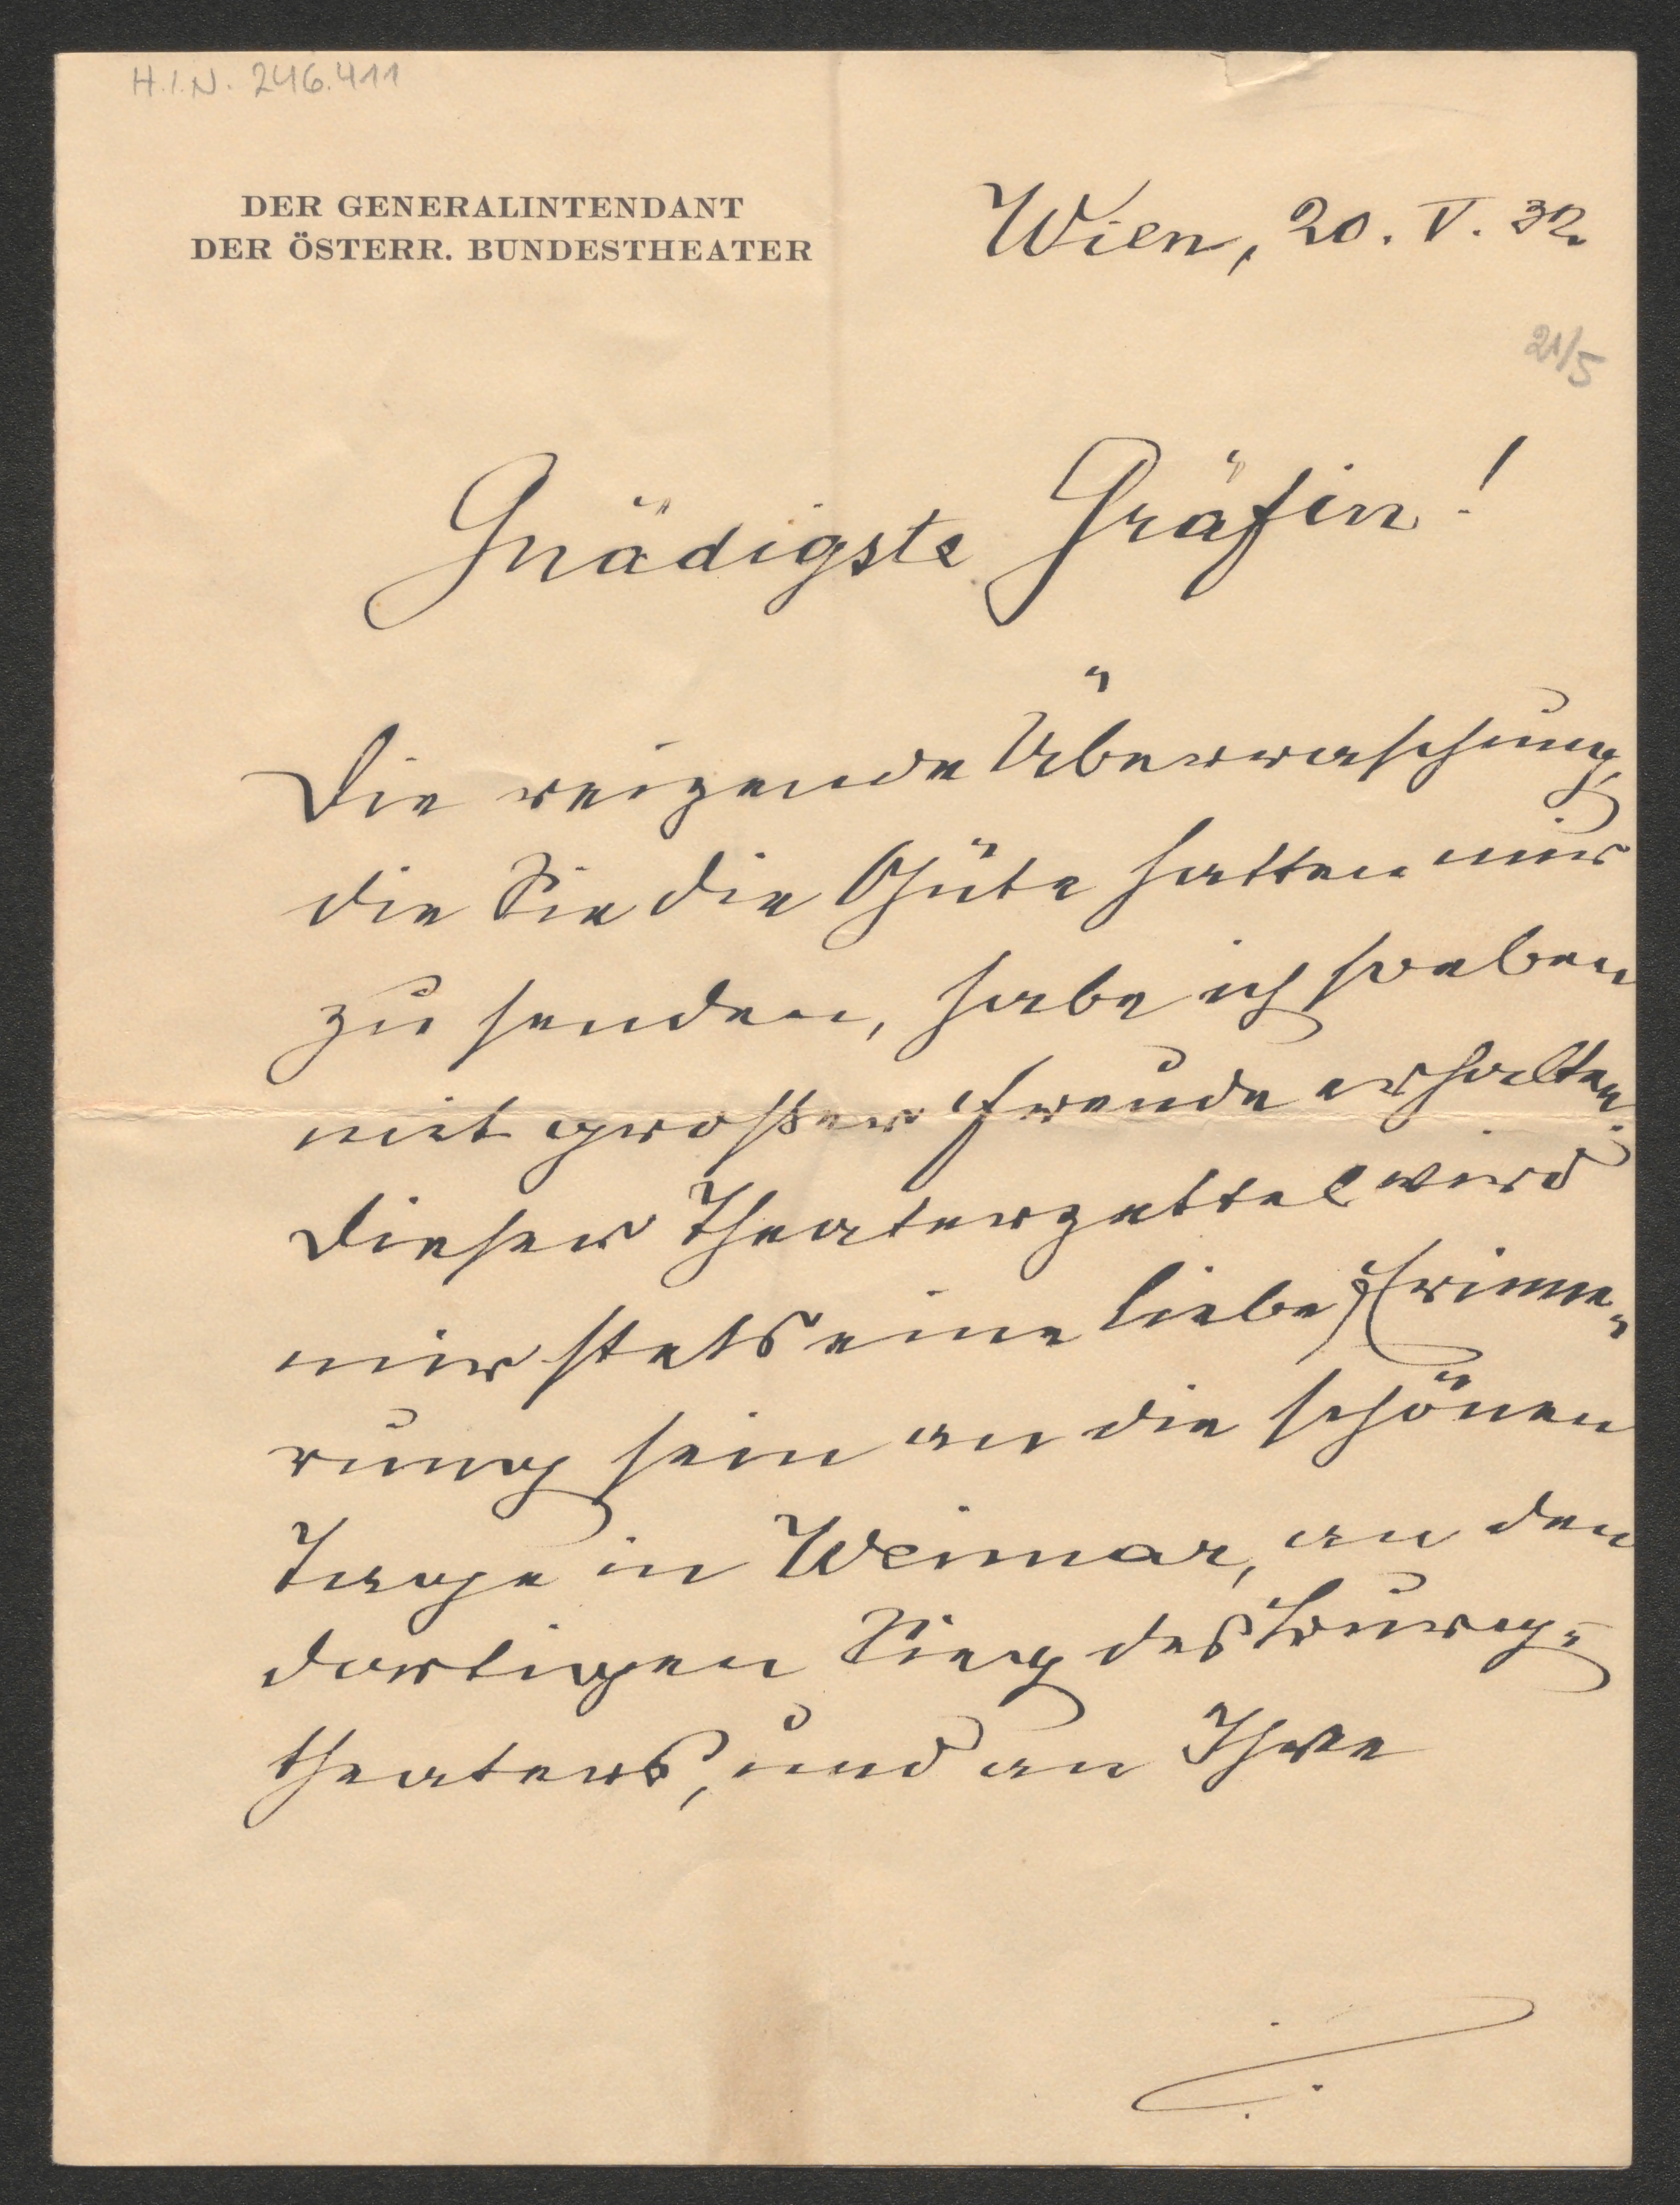 H.I.N. 246.411
DER GENERALINTENDANT
DER ÖSTERR. BUNDESTHEATER
Wien, 20. V. 32
21/5
Gnädigste Gräfin!
Die reizende Überraschung,
die Sie die Güte hatten mir
zu senden, habe ich soeben
mit großer Freude erhalten.
Dieser Theaterzettel wird
mir stets eine liebe Erinne-
rung sein an die schönen
Tage in Weimar, an den
dortigen Sieg des Burg-
theaters, und an Ihre